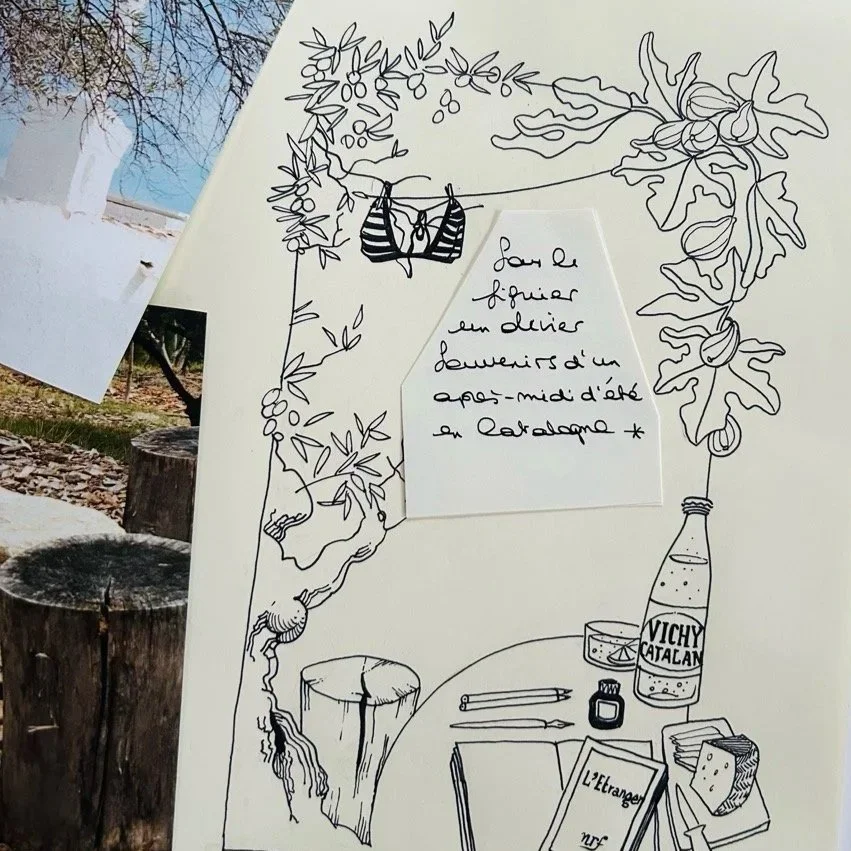 Sous le
figuier
un olivier
Souvenirs d'un
après-midi d'été
en Catalogne *
VICHY
CATALAN
L'Etranger
nrf